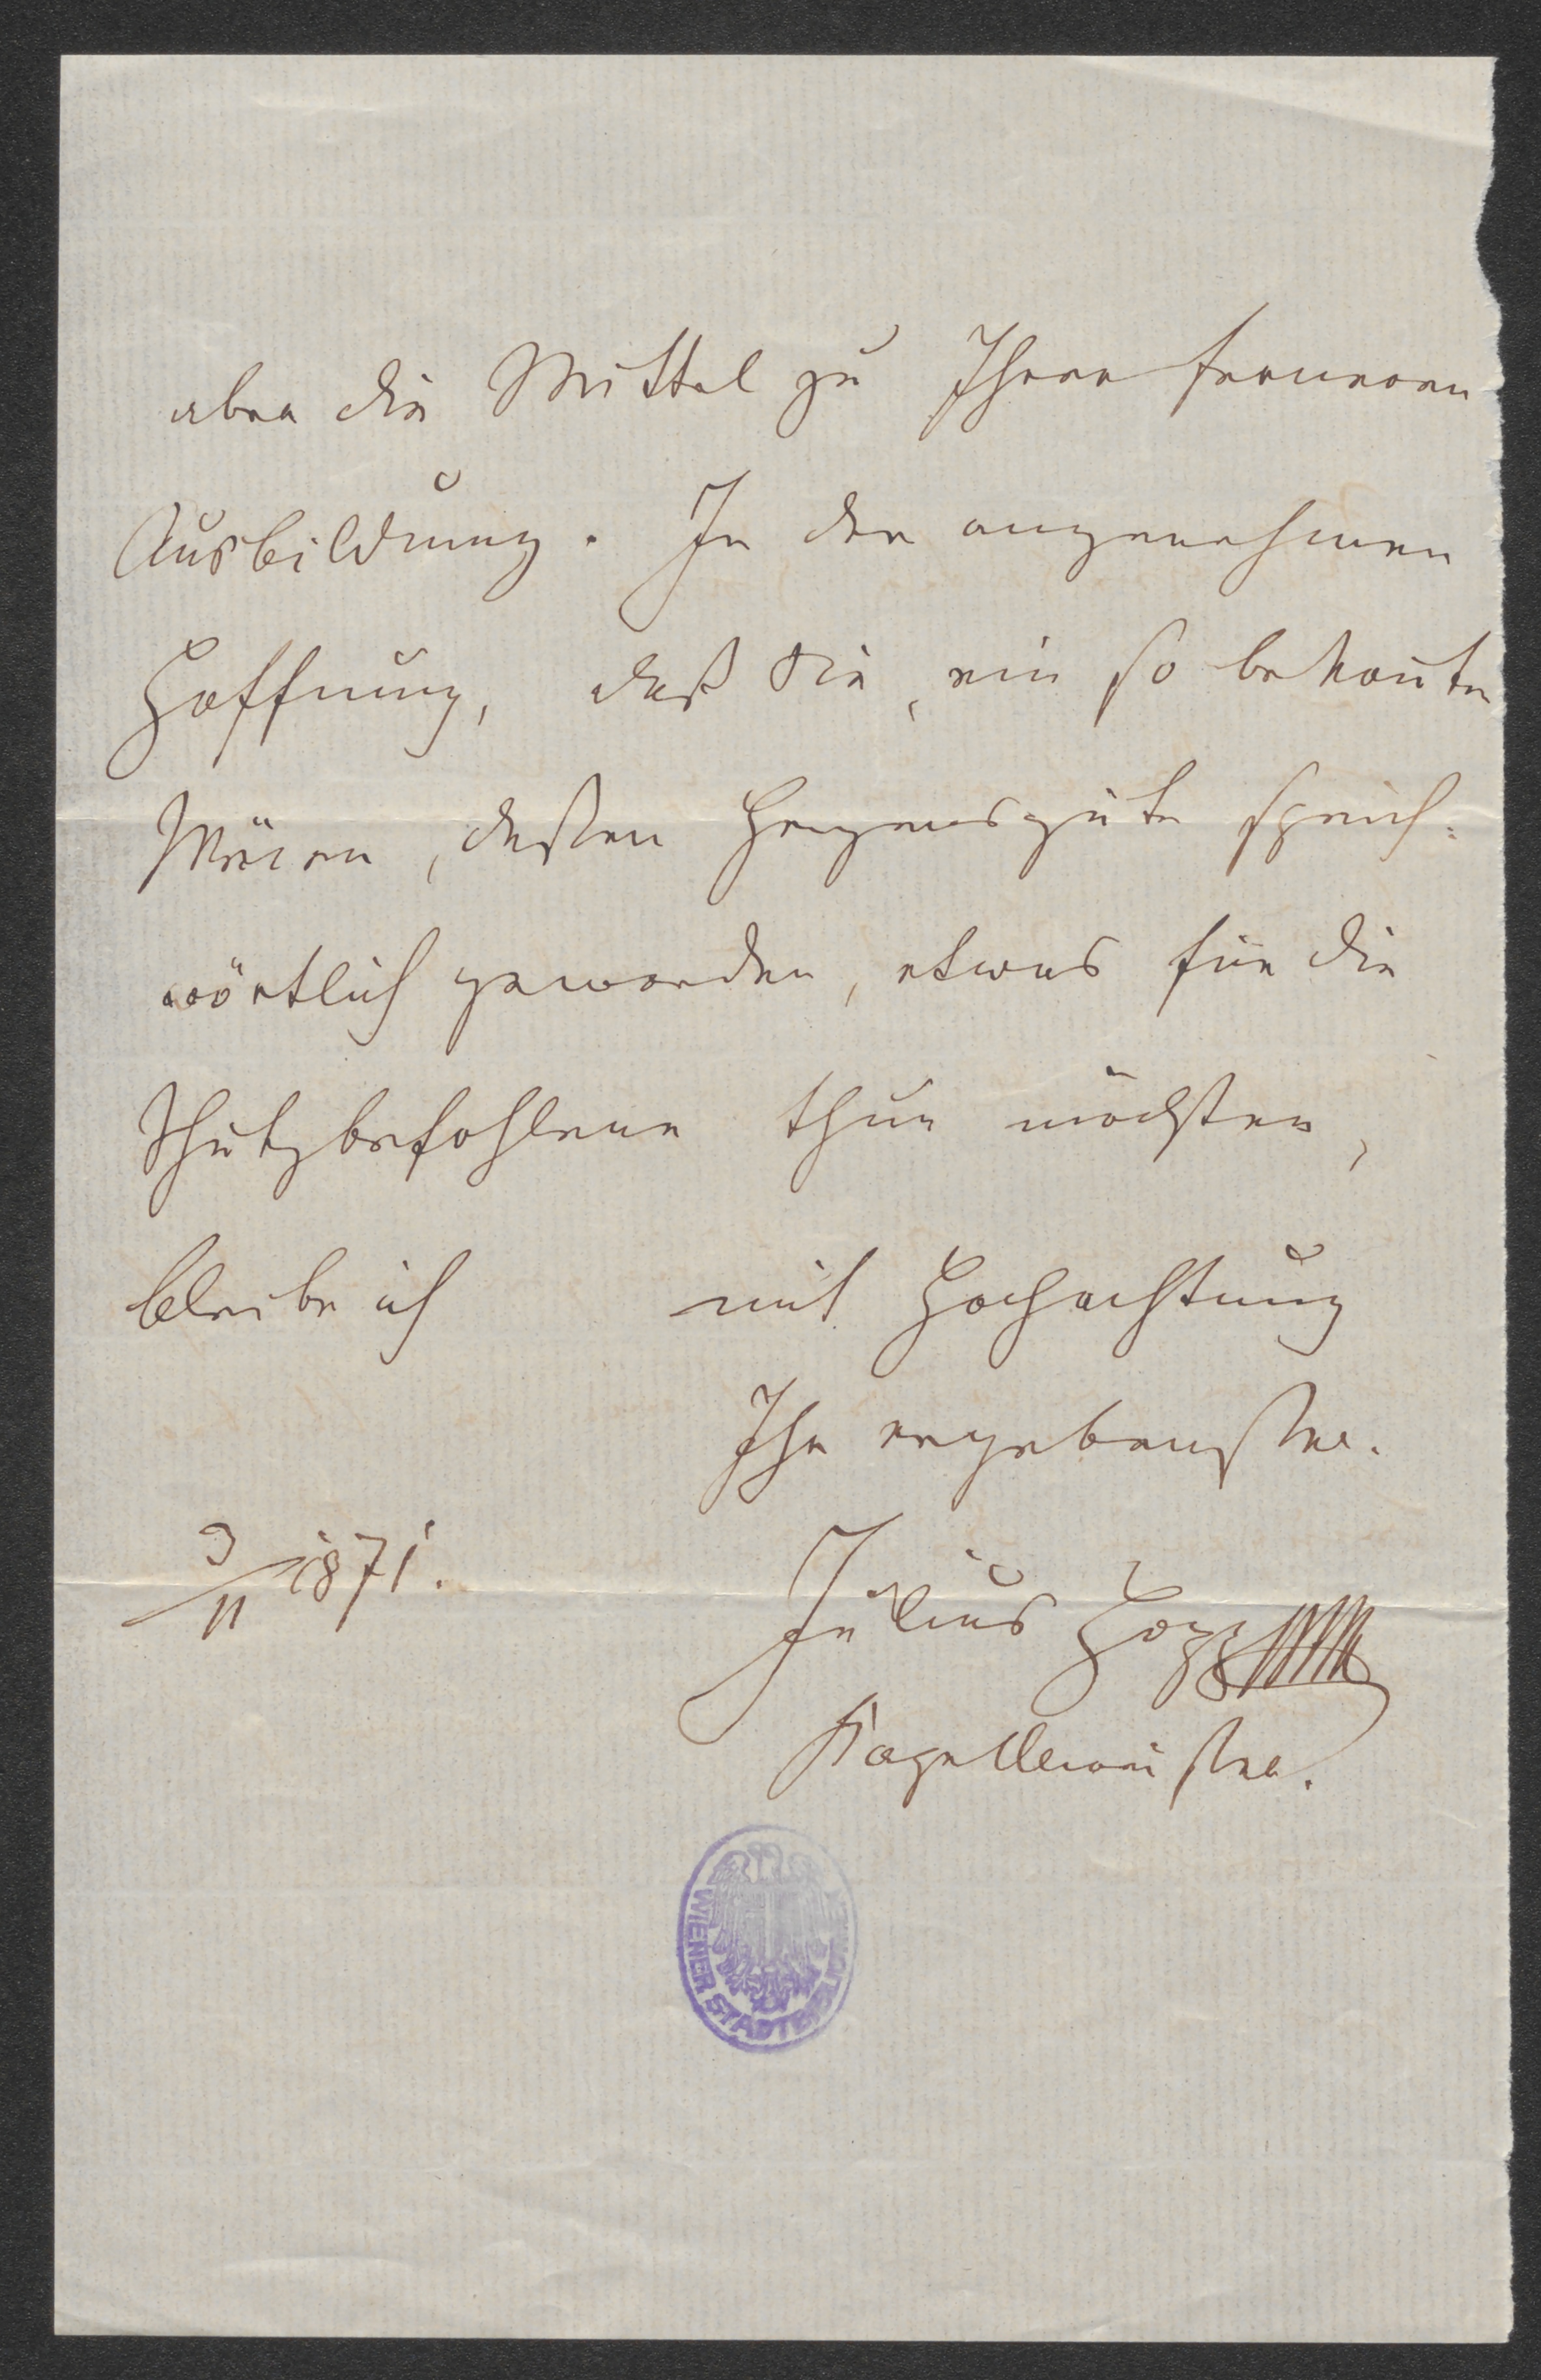 aber die Mittel zu Ihrer ferneren
Ausbildung. In der angenehmen
Hoffnung, daß Sie, ein so bekannter
Mäcen, deßen Herzensgüte sprich=
wörtlich geworden, etwas für die
Schutzbefohlene thun möchten,
bleibe ich mit Hochachtung
Ihr ergebenster.
3/11 1871.
Julius Hopp
Kapellmeister.
WIENER STADTBIBLIOTHEK